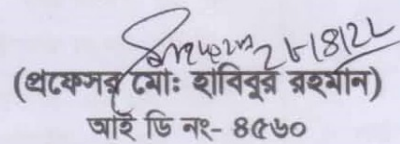 ২৮/৪/২২
(প্রফেসর মোঃ হাবিবুর রহমান)
আই ডি নং- ৪৫৬০